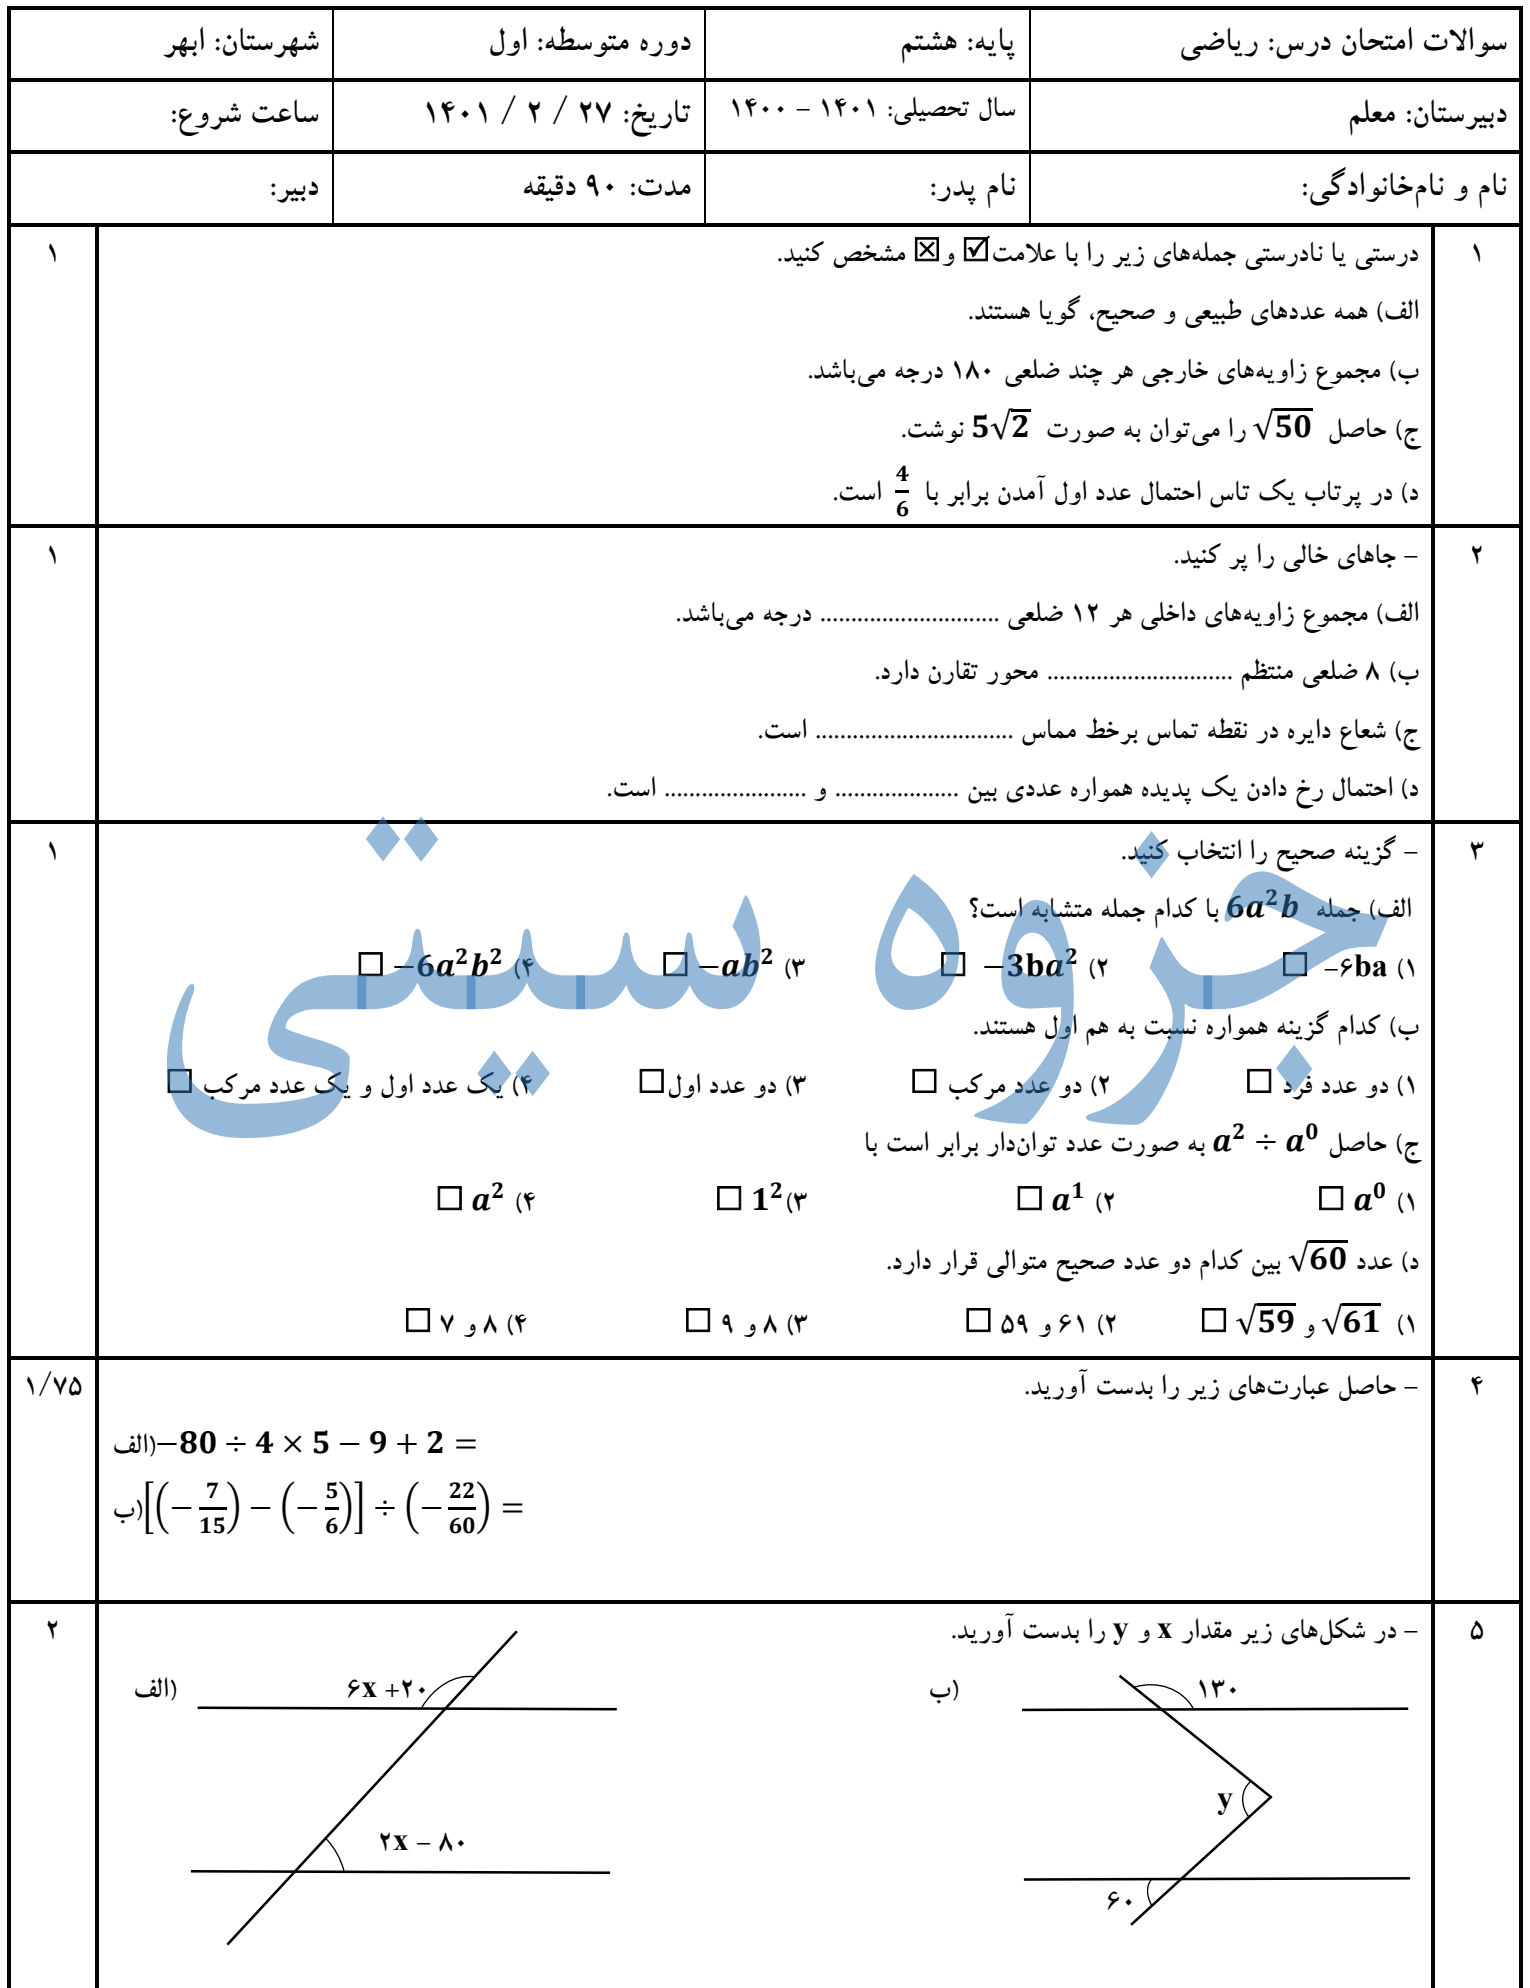 سوالات امتحان درس: ریاضی
پایه: هشتم
دوره متوسطه: اول
شهرستان: ابهر
دبیرستان: معلم
سال تحصیلی: ۱۴۰۱ – ۱۴۰۰
تاریخ: ۲۷ / ۲ / ۱۴۰۱
ساعت شروع:
نام و نام‌خانوادگی:
نام پدر:
مدت: ۹۰ دقیقه
دبیر:
۱ درستی یا نادرستی جمله‌های زیر را با علامت ☑ و ☒ مشخص کنید. ۱
الف) همه عددهای طبیعی و صحیح، گویا هستند.
ب) مجموع زاویه‌های خارجی هر چند ضلعی ۱۸۰ درجه می‌باشد.
ج) حاصل √50 را می‌توان به صورت 5√2 نوشت.
د) در پرتاب یک تاس احتمال عدد اول آمدن برابر با 4/6 است.
۲ – جاهای خالی را پر کنید. ۱
الف) مجموع زاویه‌های داخلی هر ۱۲ ضلعی ............................. درجه می‌باشد.
ب) ۸ ضلعی منتظم .............................. محور تقارن دارد.
ج) شعاع دایره در نقطه تماس برخط مماس ................................ است.
د) احتمال رخ دادن یک پدیده همواره عددی بین .................... و ....................... است.
۳ – گزینه صحیح را انتخاب کنید. ۱
الف) جمله 6a²b با کدام جمله متشابه است؟
۱) –۶ba □ ۲) −3ba² □ ۳) −ab² □ ۴) −6a²b² □
ب) کدام گزینه همواره نسبت به هم اول هستند.
۱) دو عدد فرد □ ۲) دو عدد مرکب □ ۳) دو عدد اول □ ۴) یک عدد اول و یک عدد مرکب □
ج) حاصل a² ÷ a⁰ به صورت عدد توان‌دار برابر است با
۱) a⁰ □ ۲) a¹ □ ۳) 1² □ ۴) a² □
د) عدد √60 بین کدام دو عدد صحیح متوالی قرار دارد.
۱) √61 و √59 □ ۲) ۶۱ و ۵۹ □ ۳) ۸ و ۹ □ ۴) ۸ و ۷ □
جزوه سیتی
۴ – حاصل عبارت‌های زیر را بدست آورید. ۱/۷۵
الف) −80 ÷ 4 × 5 − 9 + 2 =
ب) [(−7/15) − (−5/6)] ÷ (−22/60) =
۵ – در شکل‌های زیر مقدار x و y را بدست آورید. ۲
الف)
۶x +۲۰
۲x – ۸۰
ب)
۱۳۰
y
۶۰